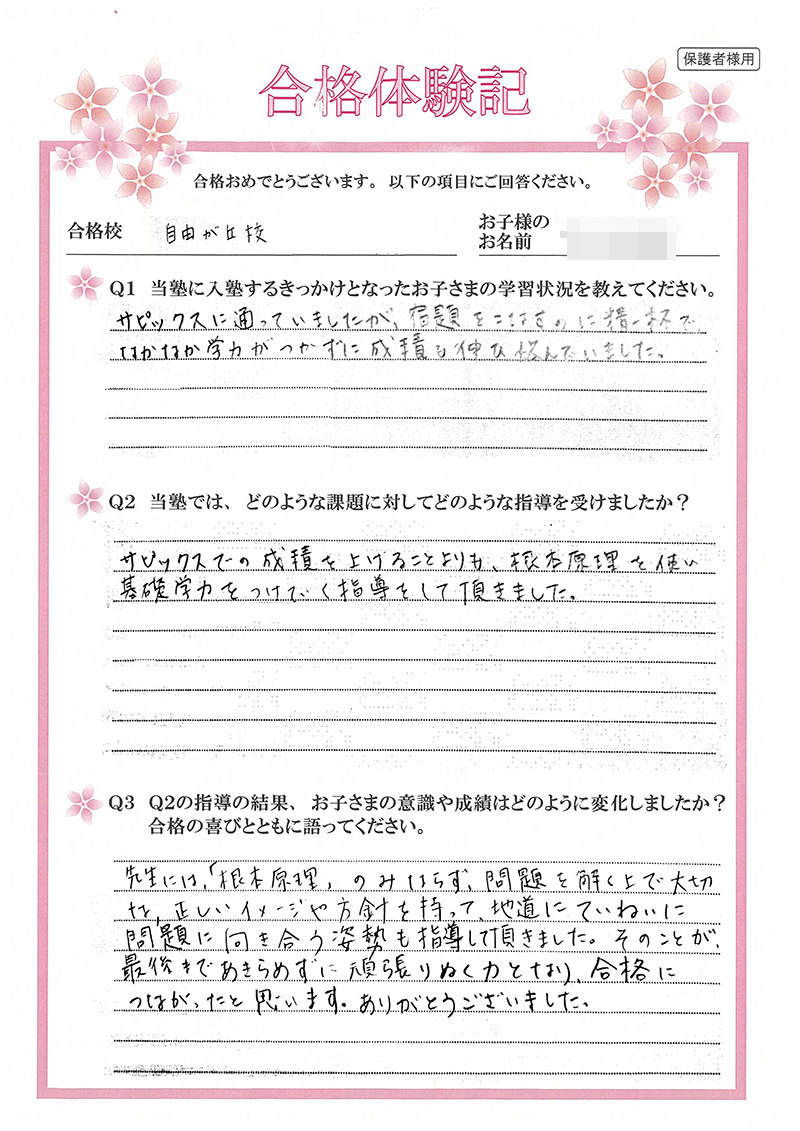 保護者様用
合格体験記
合格おめでとうございます。以下の項目にご回答ください。
合格校 自由が丘校 お子様のお名前
Q1 当塾に入塾するきっかけとなったお子さまの学習状況を教えてください。
サピックスに通っていましたが、宿題をこなすのに精一杯で、
なかなか学力がつかずに成績も伸び悩んでいました。
Q2 当塾では、どのような課題に対してどのような指導を受けましたか？
サピックスでの成績を上げることよりも、根本原理を使い
基礎学力をつけていく指導をして頂きました。
Q3 Q2の指導の結果、お子さまの意識や成績はどのように変化しましたか？
合格の喜びとともに語ってください。
先生には、「根本原理」のみならず、問題を解く上で大切
な、正しいイメージや方針を持って、地道にていねいに
問題に向き合う姿勢も指導して頂きました。そのことが、
最後まであきらめずに頑張りぬく力となり、合格に
つながったと思います。ありがとうございました。